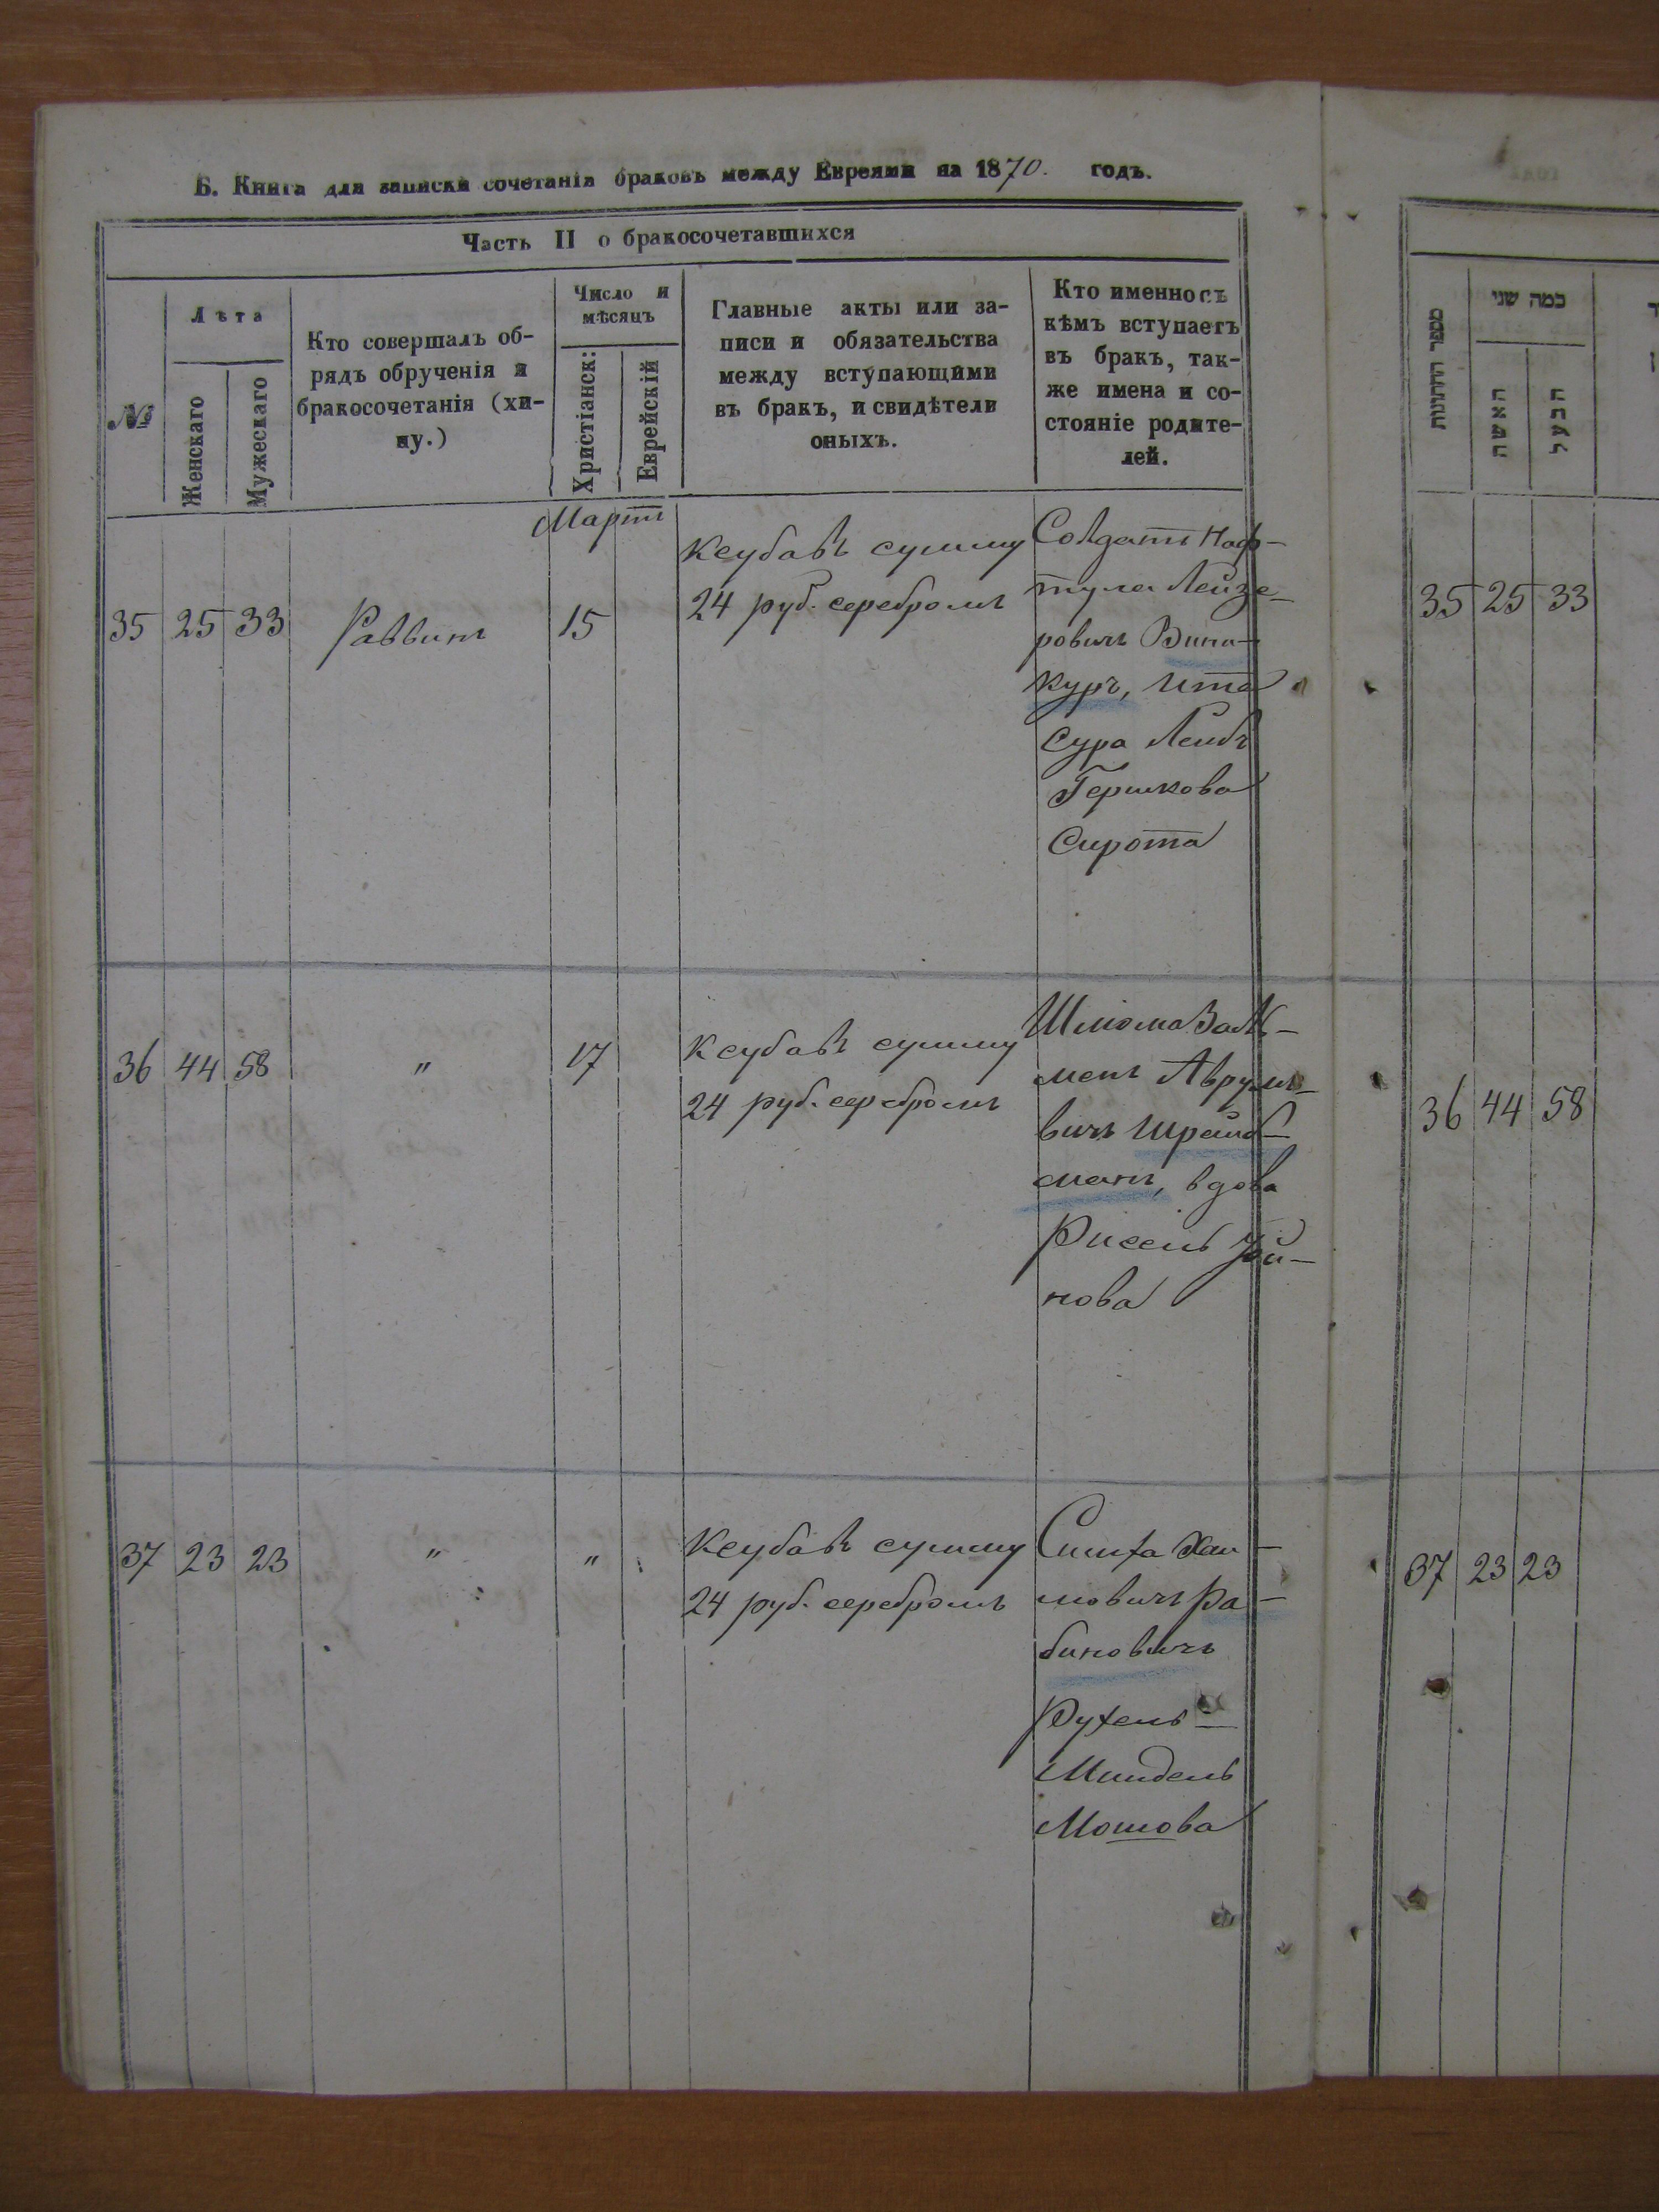 Б. Книга для записки сочетанія браковъ между Евреями на 1870. годъ.
Часть II о бракосочетавшихся
№
Лѣта
Женскаго
Мужескаго
Кто совершалъ об-
рядъ обрученія и
бракосочетанія (хи-
пу.)
Число и
мѣсяцъ
Христіанск:
Еврейскій
Главные акты или за-
писи и обязательства
между вступающими
въ бракъ, и свидѣтели
оныхъ.
Кто именно съ
кѣмъ вступаетъ
въ бракъ, так-
же имена и со-
стояніе родите-
лей.
Мартъ
35 25 33 Раввинъ 15
Ксубавъ сумму
24 руб. серебромъ
Солдатъ Наф-
тула Лейзе-
ровичъ Вини-
куръ, Ита
Сура Лейбъ
Гершкова
Сирота
36 44 58 " 17
Ксубавъ сумму
24 руб. серебромъ
Шлиома Залъ-
менъ Аврумо-
вичъ Шрайб-
манъ, вдова
Рисель
нова
37 23 23 " "
Ксубавъ сумму
24 руб. серебромъ
Симха Хаи-
мовичъ Ра-
биновичъ
Рухель-
Миндель
Мошова
מספר החתונות
כמה שני
האשה
הבעל
35 25 33
36 44 58
37 23 23